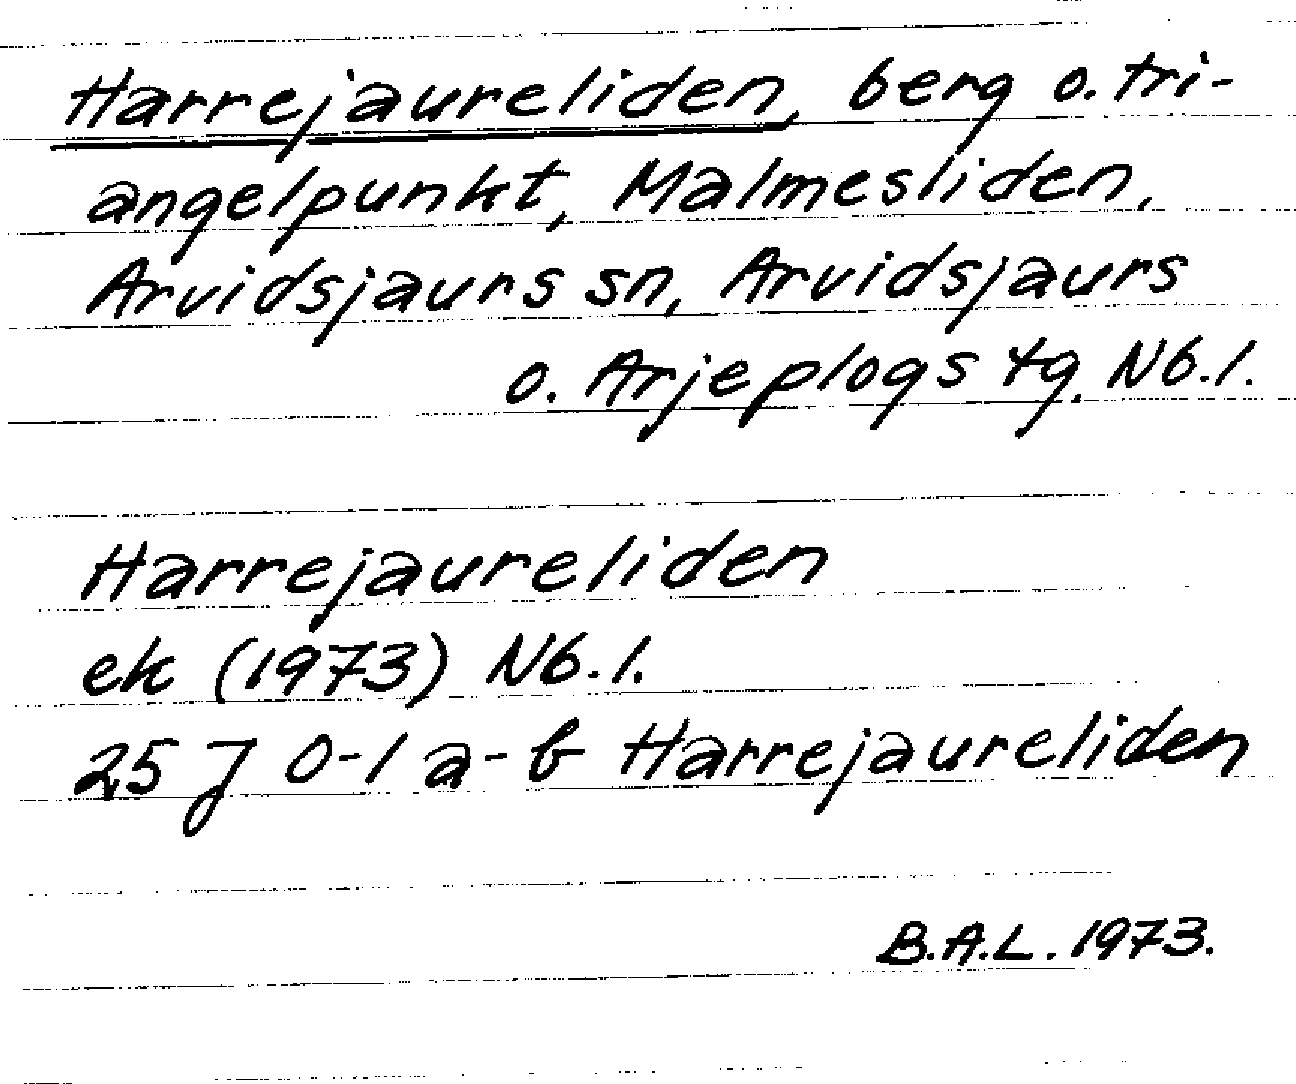 Harrejaureliden, berg o. tri-
angelpunkt, Malmesliden,
Arvidsjaurs sn, Arvidsjaurs
o. Arjeplogs tg. Nb.l.
Harrejaureliden
ek (1973) Nb.l.
25 J 0-1 a-b Harrejaureliden
B.A.L. 1973.